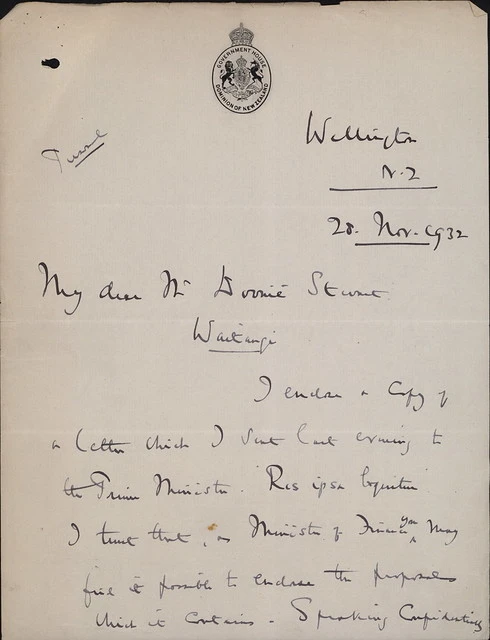 GOVERNMENT HOUSE
DOMINION OF NEW ZEALAND
Wellington
N.Z
28. Nov. 1932
My dear Mr Downie Stewart
Waitangi
I enclose a Copy of
a letter which I sent last evening to
the Prime Minister. Res ipsa loquitur
I trust that, as Minister of Finance you may
find it possible to endorse the proposals
which it contains - Speaking Confidentially